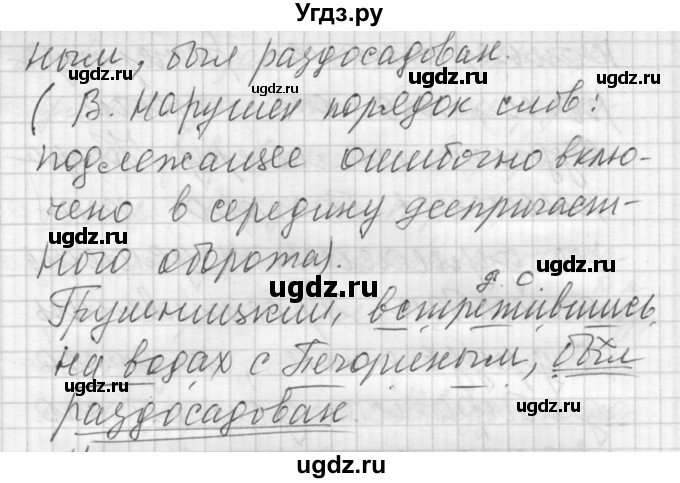 Угдз.ру
ным, был раздосадован.
( В. Нарушен порядок слов:
подлежащее ошибочно вклю-
чено в середину деепричаст-
ного оборота).
д. о.
Грушницкий, встретившись
на водах с Печориным, был
раздосадован.
ugdz.ru ugdz.ru ugdz.ru
ugdz.ru ugdz.ru
ugdz.ru ugdz.ru
ugdz.ru ugdz.ru
ugdz.ru ugdz.ru
ugdz.ru ugdz.ru
ugdz.ru ugdz.ru
ugdz.ru